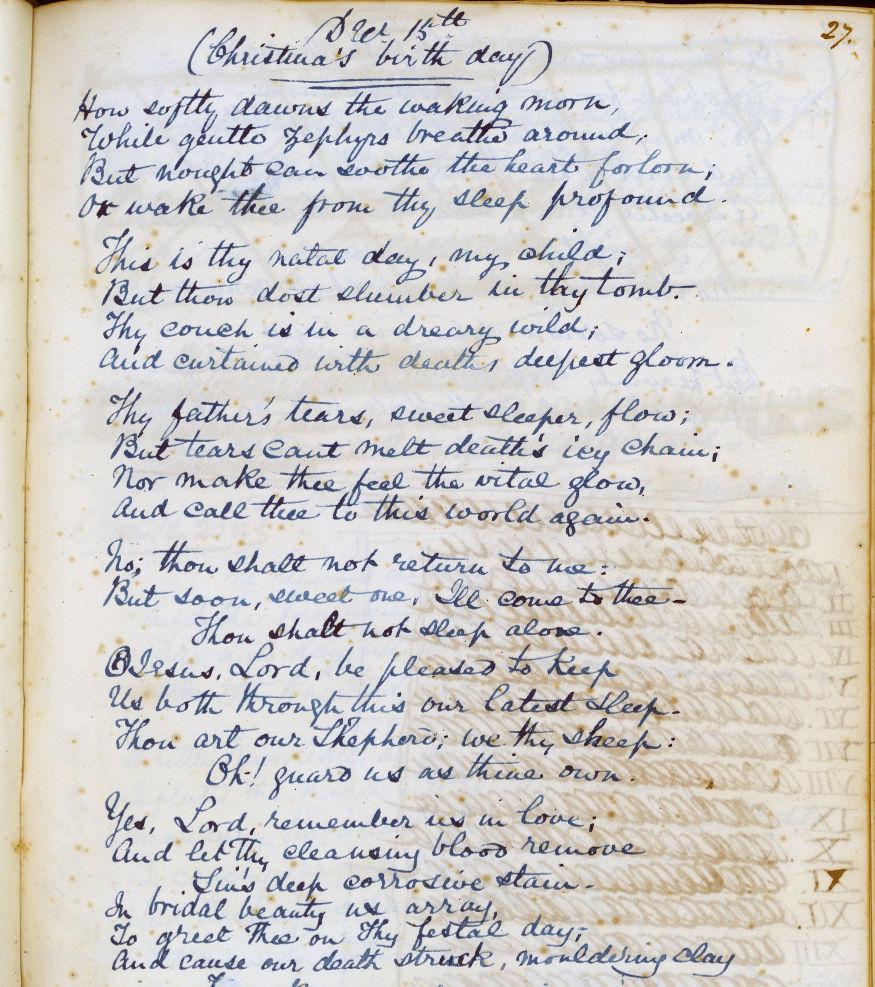 27.
Decr 15th
(Christina's birth day)
How softly dawns the waking morn,
While gentle zephyrs breathe around;
But nought can soothe the heart forlorn;
Or wake thee from thy sleep profound.
This is thy natal day, my child;
But thou dost slumber in thy tomb.
Thy couch is in a dreary wild;
And curtained with death's deepest gloom.
Thy father's tears, sweet sleeper, flow;
But tears cant melt death's icy chain;
Nor make thee feel the vital glow,
And call thee to this world again.
No; thou shalt not return to me:
But soon, sweet one, I'll come to thee -
Thou shalt not sleep alone.
O Jesus, Lord, be pleased to keep
Us both through this our latest sleep.
Thou art our Shepherd; we thy sheep:
Oh! guard us as thine own.
Yes, Lord, remember us in love;
And let thy cleansing blood remove
Sin's deep corrosive stain.
In bridal beauty us array,
To greet Thee on Thy festal day;
And cause our death struck, mouldering clay